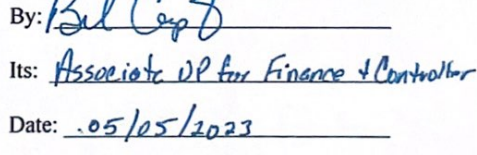 By:
Its: Associate VP for Finance & Controller
Date: 05/05/2023